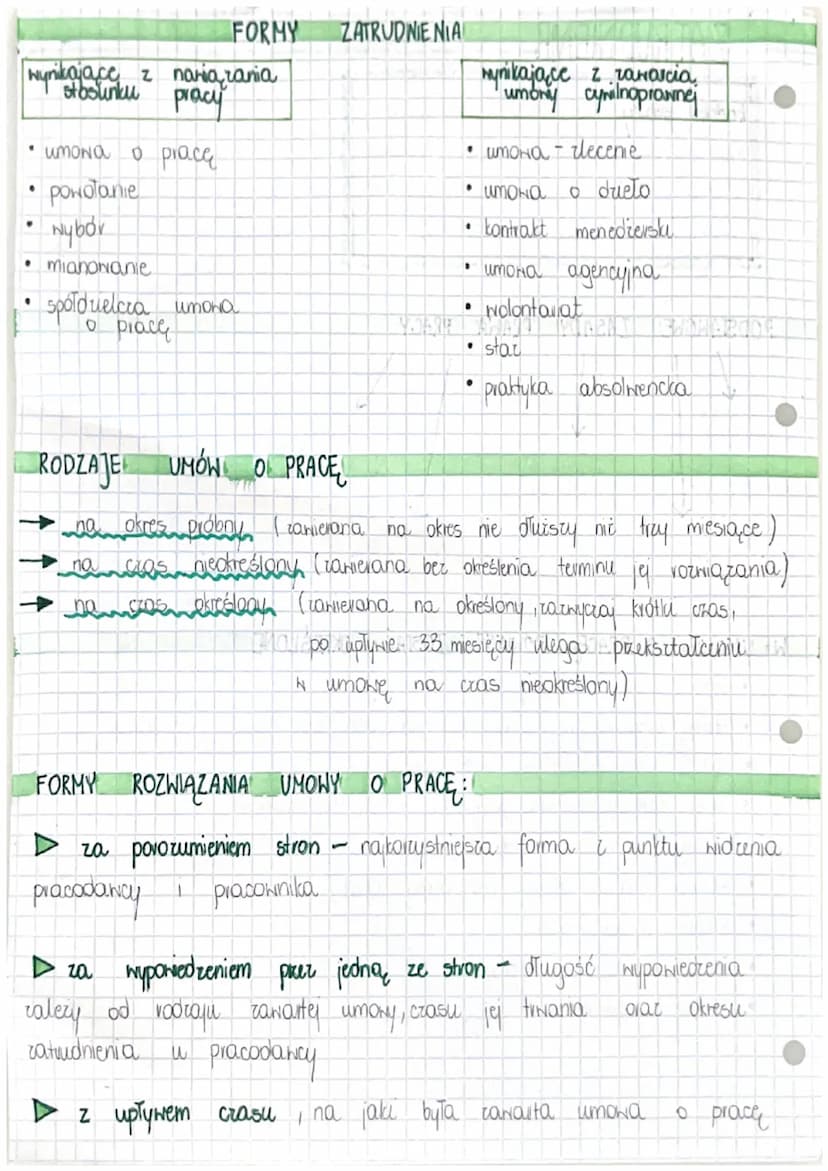 FORMY ZATRUDNIENIA
wynikające z nawiązania
stosunku pracy
wynikające z zawarcia
umowy cywilnoprawnej
• umowa o pracę
• powołanie
• wybór
• mianowanie
• spółdzielcza umowa
o pracę
• umowa - zlecenie
• umowa o dzieło
• kontrakt menedżerski
• umowa agencyjna
• wolontariat
• staż
• praktyka absolwencka
RODZAJE UMÓW O PRACĘ
→ na okres próbny (zawierana na okres nie dłuższy niż trzy miesiące)
→ na czas nieokreślony (zawierana bez określenia terminu jej rozwiązania)
→ na czas określony (zawierana na określony, zazwyczaj krótki czas,
po upływie 33 miesięcy ulega przekształceniu
w umowę na czas nieokreślony)
FORMY ROZWIĄZANIA UMOWY O PRACĘ:
▷ za porozumieniem stron - najkorzystniejsza forma z punktu widzenia
pracodawcy i pracownika
▷ za wypowiedzeniem przez jedną ze stron - długość wypowiedzenia
zależy od rodzaju zawartej umowy, czasu jej trwania oraz okresu
zatrudnienia u pracodawcy
▷ z upływem czasu, na jaki była zawarta umowa o pracę